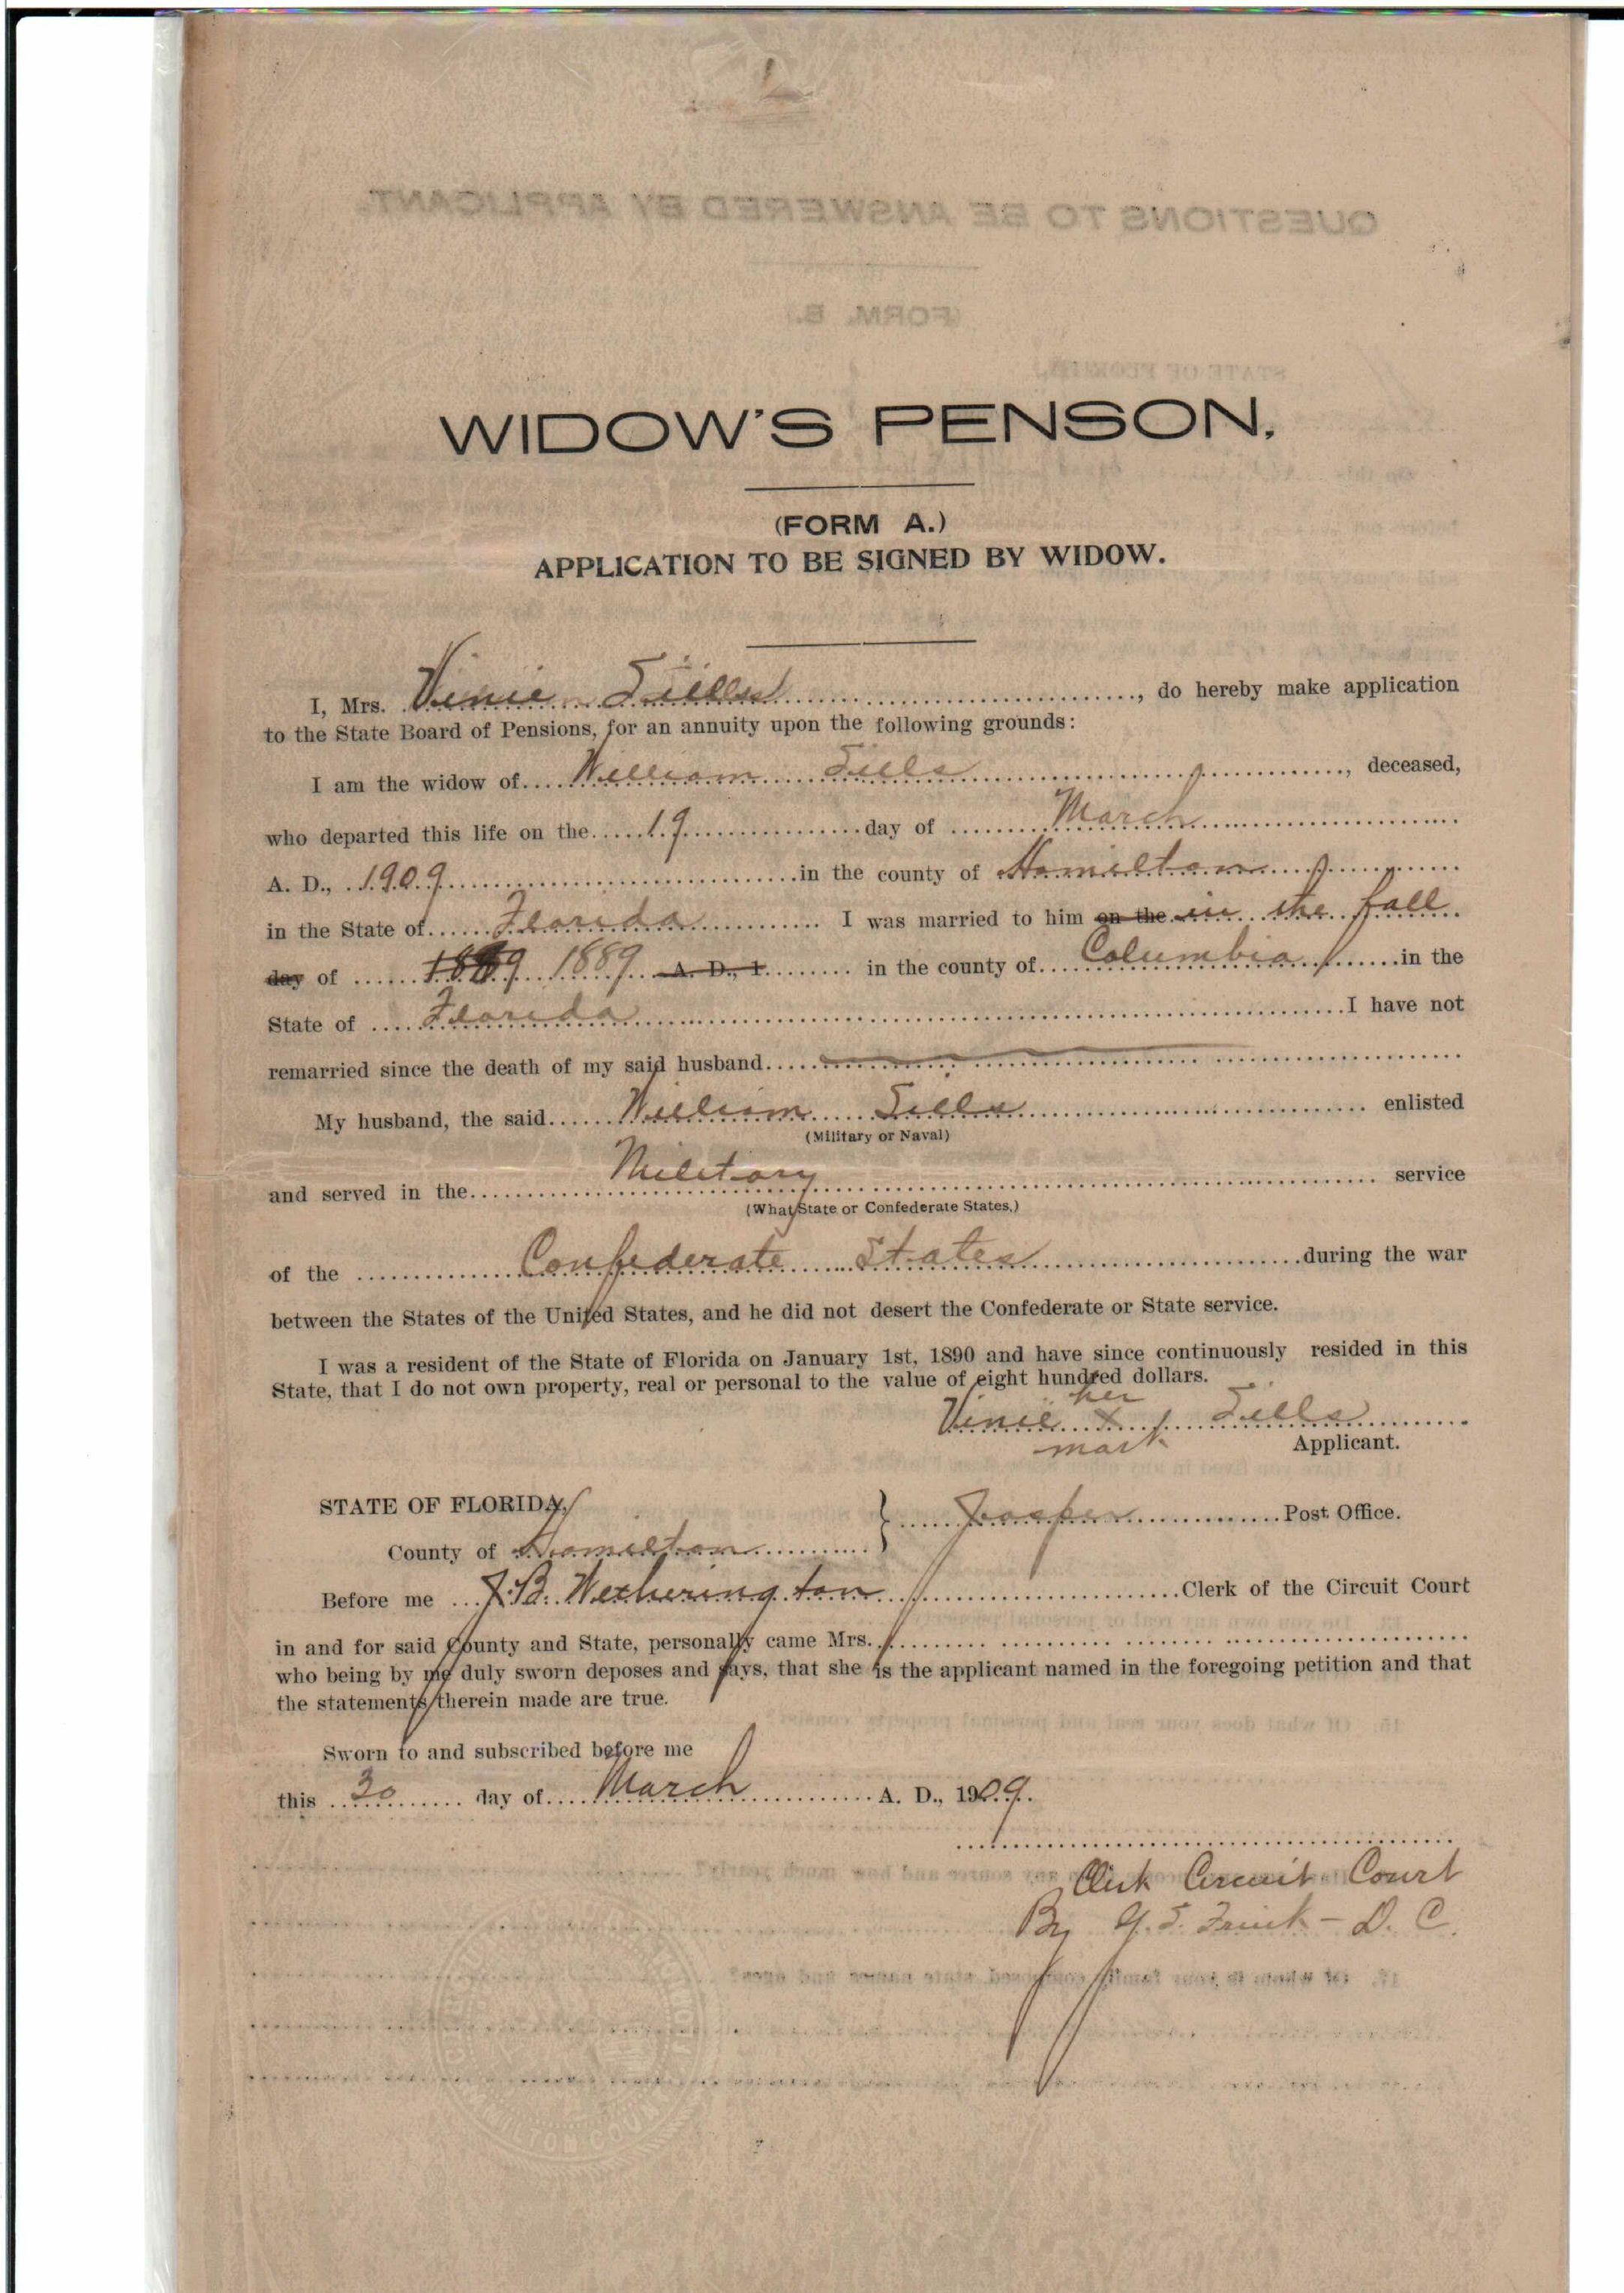 WIDOW'S PENSON.
(FORM A.)
APPLICATION TO BE SIGNED BY WIDOW.
I, Mrs. Vinie Sills, do hereby make application
to the State Board of Pensions, for an annuity upon the following grounds:
I am the widow of William Sills, deceased,
who departed this life on the 19 day of March
A. D., 1909 in the county of Hamilton
in the State of Florida I was married to him on the in the fall
day of 1889 A. D., 1 in the county of Columbia in the
State of Florida I have not
remarried since the death of my said husband
My husband, the said William Sills enlisted
(Military or Naval)
and served in the Military service
(What State or Confederate States.)
of the Confederate States during the war
between the States of the United States, and he did not desert the Confederate or State service.
I was a resident of the State of Florida on January 1st, 1890 and have since continuously resided in this
State, that I do not own property, real or personal to the value of eight hundred dollars.
her
Vinie X Sills
mark Applicant.
STATE OF FLORIDA, Jasper Post Office.
County of Hamilton
Before me J. B. Wetherington Clerk of the Circuit Court
in and for said County and State, personally came Mrs.
who being by me duly sworn deposes and says, that she is the applicant named in the foregoing petition and that
the statements therein made are true.
Sworn to and subscribed before me
this 30 day of March A. D., 1909.
Clerk Circuit Court
By D. C.
HAMILTON COUN